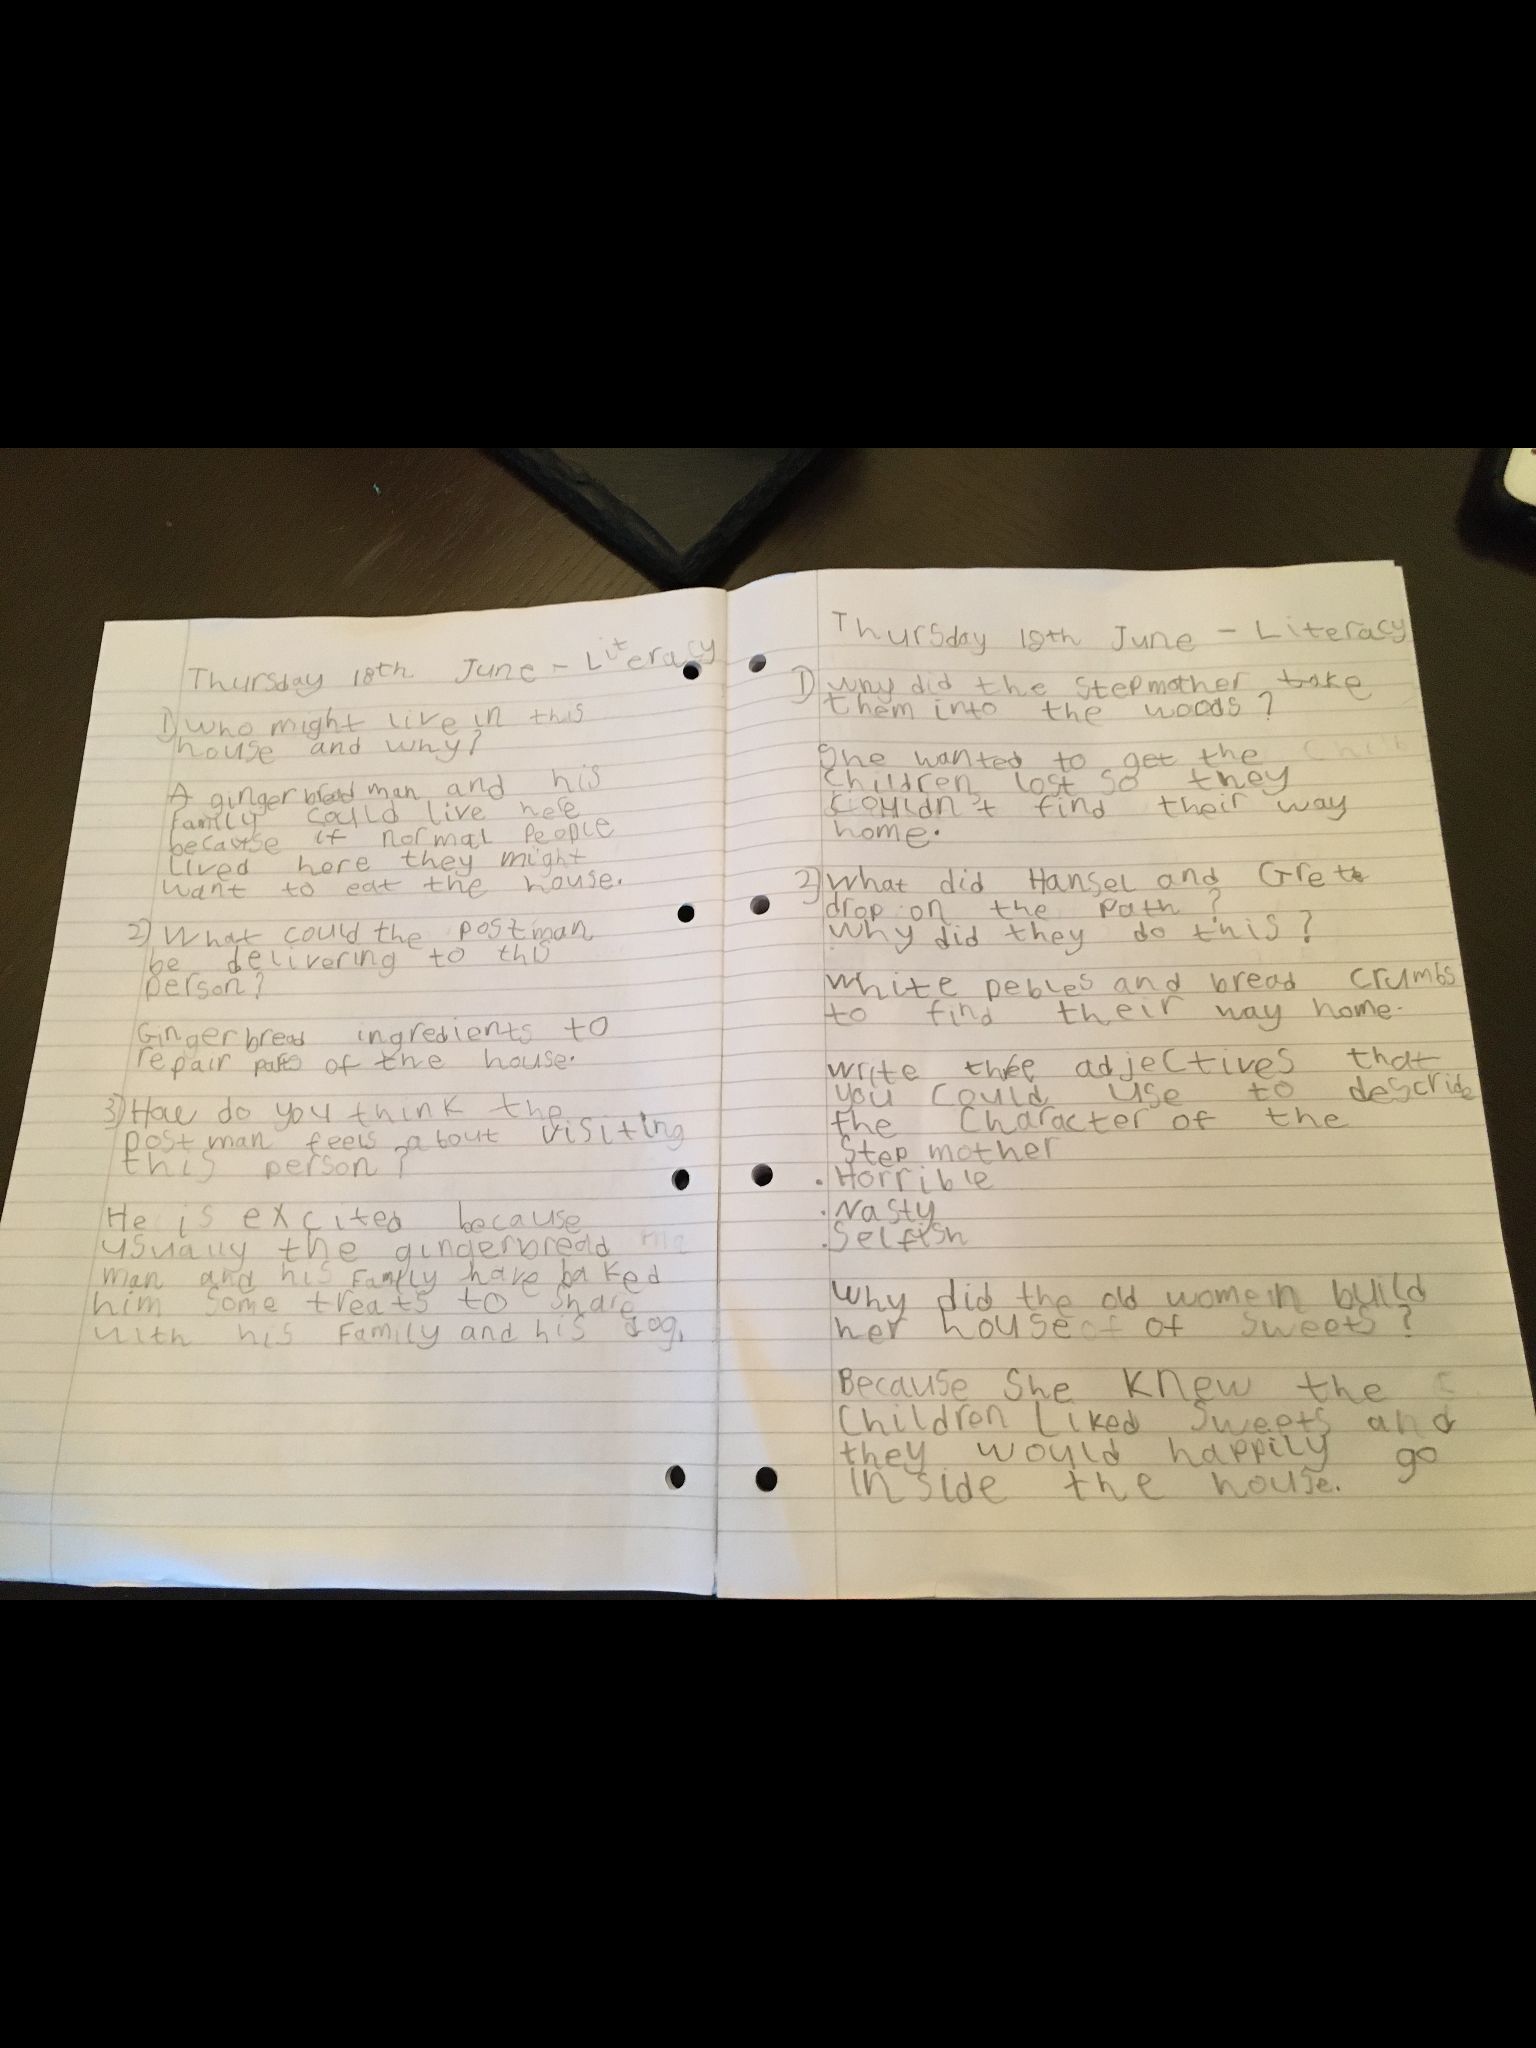 Thursday 18th June - Literacy
1) Who might live in this
house and why?
A gingerbread man and his
family could live here
because if normal people
lived here they might
want to eat the house.
2) What could the postman
be delivering to this
person?
Gingerbread ingredients to
repair parts of the house.
3) How do you think the
postman feels about visiting
this person?
He is excited because
usually the gingerbread
man and his family have baked
him some treats to share
with his family and his dog.
Thursday 18th June - Literacy
1) Why did the stepmother take
them into the woods?
She wanted to get the
children lost so they
couldn't find their way
home.
2) What did Hansel and
drop on the path?
Why did they do this?
White pebles and bread crumbs
to find their way home.
Write three adjectives that
you could use to describe
the character of the
step mother
. Horrible
. Nasty
. Selfish
Why did the old women build
her house of sweets?
Because she knew the
children liked sweets and
they would happily go
inside the house.